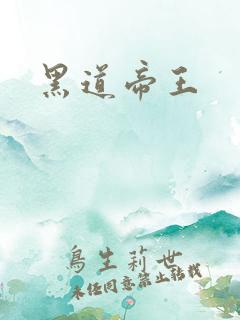 黑道帝王
鳥生莉世
未经同意禁止转载